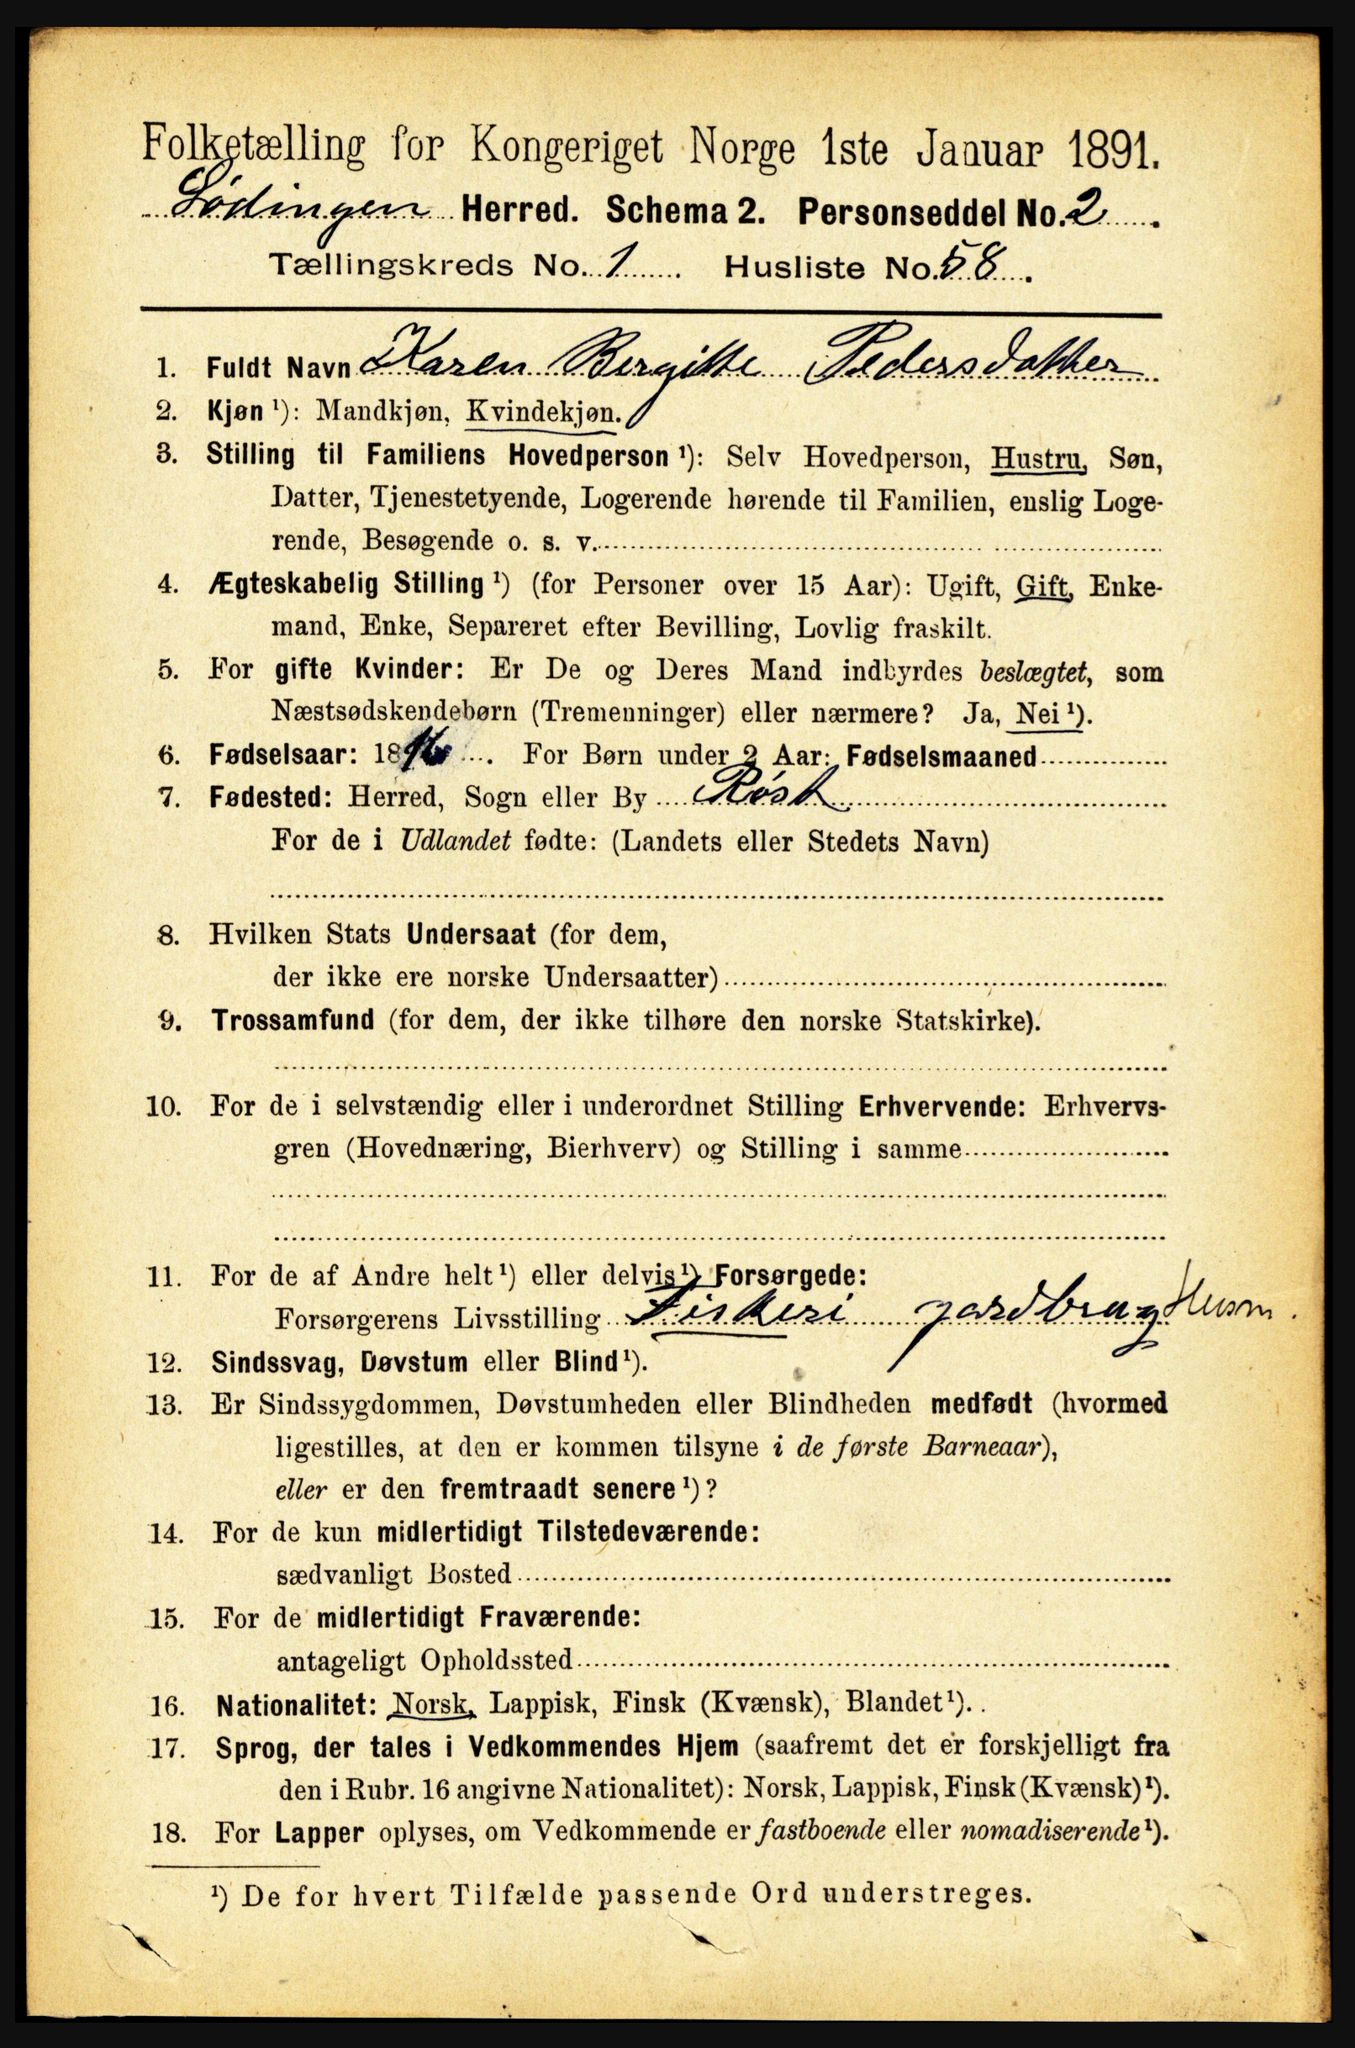 Folketælling for Kongeriget Norge 1ste Januar 1891.
Lødingen Herred. Schema 2. Personseddel No. 2.
Tællingskreds No. 1. Husliste No. 58.
1. Fuldt Navn Karen Bergitte Pedersdatter
2. Kjøn ¹): Mandkjøn, Kvindekjøn.
3. Stilling til Familiens Hovedperson ¹): Selv Hovedperson, Hustru, Søn,
Datter, Tjenestetyende, Logerende hørende til Familien, enslig Loge-
rende, Besøgende o. s. v.
4. Ægteskabelig Stilling ¹) (for Personer over 15 Aar): Ugift, Gift, Enke-
mand, Enke, Separeret efter Bevilling, Lovlig fraskilt.
5. For gifte Kvinder: Er De og Deres Mand indbyrdes beslægtet, som
Næstsødskendebørn (Tremenninger) eller nærmere? Ja, Nei ¹).
6. Fødselsaar: 18 . For Børn under 2 Aar: Fødselsmaaned
7. Fødested: Herred, Sogn eller By Røst
For de i Udlandet fødte: (Landets eller Stedets Navn)
8. Hvilken Stats Undersaat (for dem,
der ikke ere norske Undersaatter)
9. Trossamfund (for dem, der ikke tilhøre den norske Statskirke).
10. For de i selvstændig eller i underordnet Stilling Erhvervende: Erhvervs-
gren (Hovednæring, Bierhverv) og Stilling i samme
11. For de af Andre helt ¹) eller delvis ¹) Forsørgede:
Forsørgerens Livsstilling Fiskeri jordbrug Husm.
12. Sindssvag, Døvstum eller Blind ¹).
13. Er Sindssygdommen, Døvstumheden eller Blindheden medfødt (hvormed
ligestilles, at den er kommen tilsyne i de første Barneaar),
eller er den fremtraadt senere ¹)?
14. For de kun midlertidigt Tilstedeværende:
sædvanligt Bosted
15. For de midlertidigt Fraværende:
antageligt Opholdssted
16. Nationalitet: Norsk, Lappisk, Finsk (Kvænsk), Blandet ¹).
17. Sprog, der tales i Vedkommendes Hjem (saafremt det er forskjelligt fra
den i Rubr. 16 angivne Nationalitet): Norsk, Lappisk, Finsk (Kvænsk) ¹).
18. For Lapper oplyses, om Vedkommende er fastboende eller nomadiserende ¹).
¹) De for hvert Tilfælde passende Ord understreges.